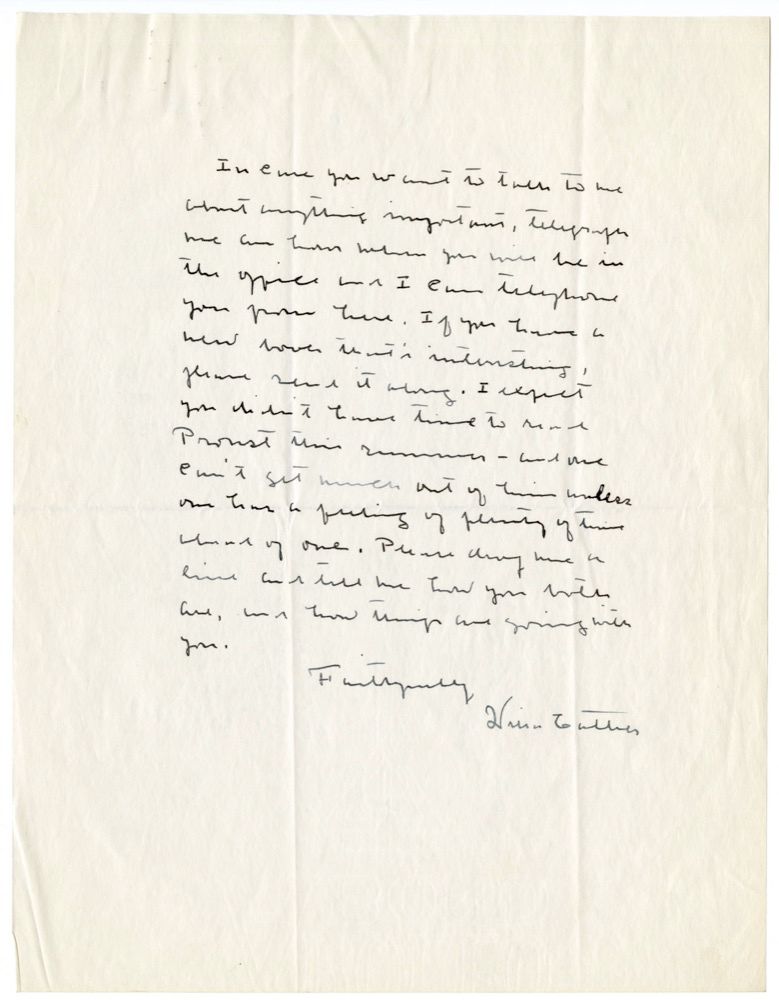 In case you want to talk to me
about anything important, telegraph
me an hour when you will be in
the office and I can telephone
you from here. If you have a
new book that's interesting,
please send it along. I expect
you didn't have time to read
Proust this summer - and one
can't get much out of him unless
one has a feeling of plenty of time
ahead of one. Please drop me a
line and tell me how you both
are, and how things are going with
you.
Faithfully
Willa Cather